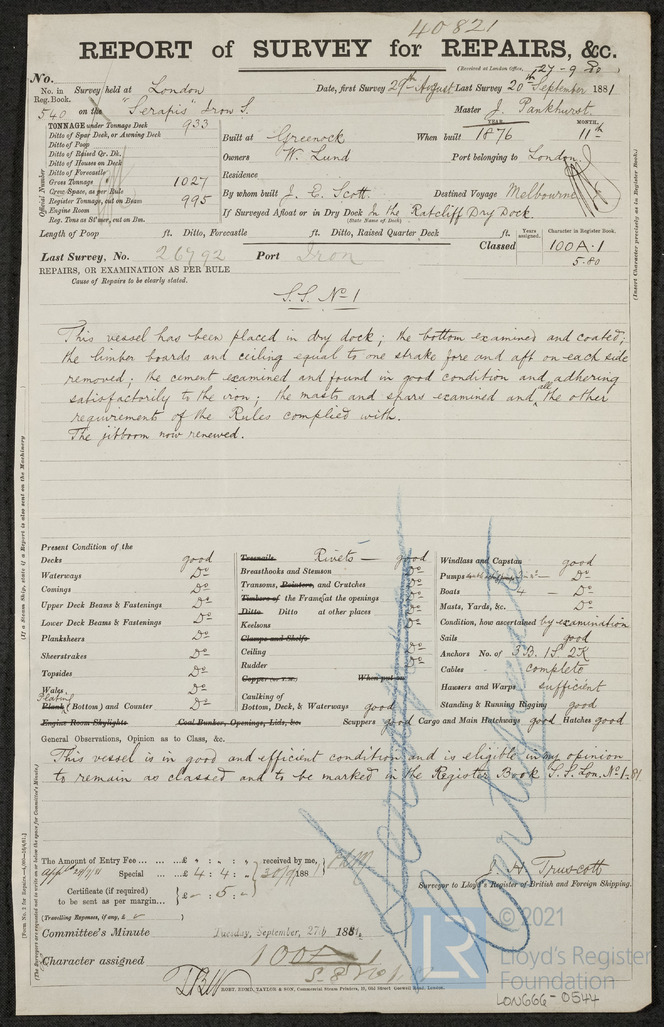 40821
REPORT of SURVEY for REPAIRS, &c.
(Received at London Office, 27-9-80)
No.
No. in Reg. Book. Survey held at London Date, first Survey 29th August Last Survey 20th September 1881
540 on the "Serapis" Iron S. Master J. Pankhurst
TONNAGE under Tonnage Deck 933
Ditto of Spar Deck, or Awning Deck
Ditto of Poop
Ditto of Raised Qr. Dk.
Ditto of Houses on Deck
Ditto of Forecastle
Gross Tonnage 1027
Crew Space, as per Rule
Register Tonnage, cut on Beam 995
Engine Room
Reg. Tons as St'mer, cut on Bm.
Official Number
YEAR. MONTH.
Built at Greenock When built 1876 11th
Owners W. Lund Port belonging to London
Residence
By whom built J. E. Scott Destined Voyage Melbourne
If Surveyed Afloat or in Dry Dock In the Ratcliff Dry Dock
(State Name of Dock.)
Length of Poop ft. Ditto, Forecastle ft. Ditto, Raised Quarter Deck ft.
Years assigned. Character in Register Book.
Last Survey, No. 26792 Port Iron Classed 100A.1
5.80
(Insert Character precisely as in Register Book.)
REPAIRS, OR EXAMINATION AS PER RULE
Cause of Repairs to be clearly stated.
S.S. No 1
This vessel has been placed in dry dock; the bottom examined and coated;
the limber boards and ceiling equal to one strake fore and aft on each side
removed; the cement examined and found in good condition and adhering
satisfactorily to the iron; the masts and spars examined and all the other
requirements of the Rules complied with.
The jibboom now renewed.
(If a Steam Ship, state if a Report is also sent on the Machinery
Present Condition of the
Decks good
Waterways Do
Comings Do
Upper Deck Beams & Fastenings Do
Lower Deck Beams & Fastenings Do
Planksheers Do
Sheerstrakes Do
Topsides Do
Wales Do
Plating
Plank (Bottom) and Counter Do
Engine Room Skylights Coal Bunker, Openings, Lids, &c.
Treenails Rivets — good
Breasthooks and Stemson Do
Transoms, Pointers, and Crutches Do
Timbers of the Frame at the openings Do
Ditto Ditto at other places Do
Keelsons Do
Clamps and Shelfs
Ceiling Do
Rudder Do
Copper or Y.M. When put on
Caulking of
Bottom, Deck, & Waterways good
Scuppers good Cargo and Main Hatchways good Hatches good
Windlass and Capstan good
Pumps Do
Boats 4 — Do
Masts, Yards, &c. Do
Condition, how ascertained by examination
Sails good
Anchors No. of 3B. 1S. 2K
Cables complete
Hawsers and Warps sufficient
Standing & Running Rigging good
General Observations, Opinion as to Class, &c.
This vessel is in good and efficient condition and is eligible in my opinion
to remain as classed and to be marked in the Register Book S.S. Lon. No 1-81
The Amount of Entry Fee ... ... ...£ : : received by me,
Special ... ...£ 4 : 4 : 20/9/1881
Certificate (if required) to be sent as per margin... £ : 5 :
(Travelling Expenses, if any, £
J. H. Truscott
Surveyor to Lloyd's Register of British and Foreign Shipping.
Committee's Minute Tuesday, September, 27th 1881.
Character assigned 100A 1
ROBT. EDMD. TAYLOR & SON, Commercial Steam Printers, 19, Old Street Goswell Road, London.
Certificate
LR
© 2021
Lloyd's Register
Foundation
LON666-0544